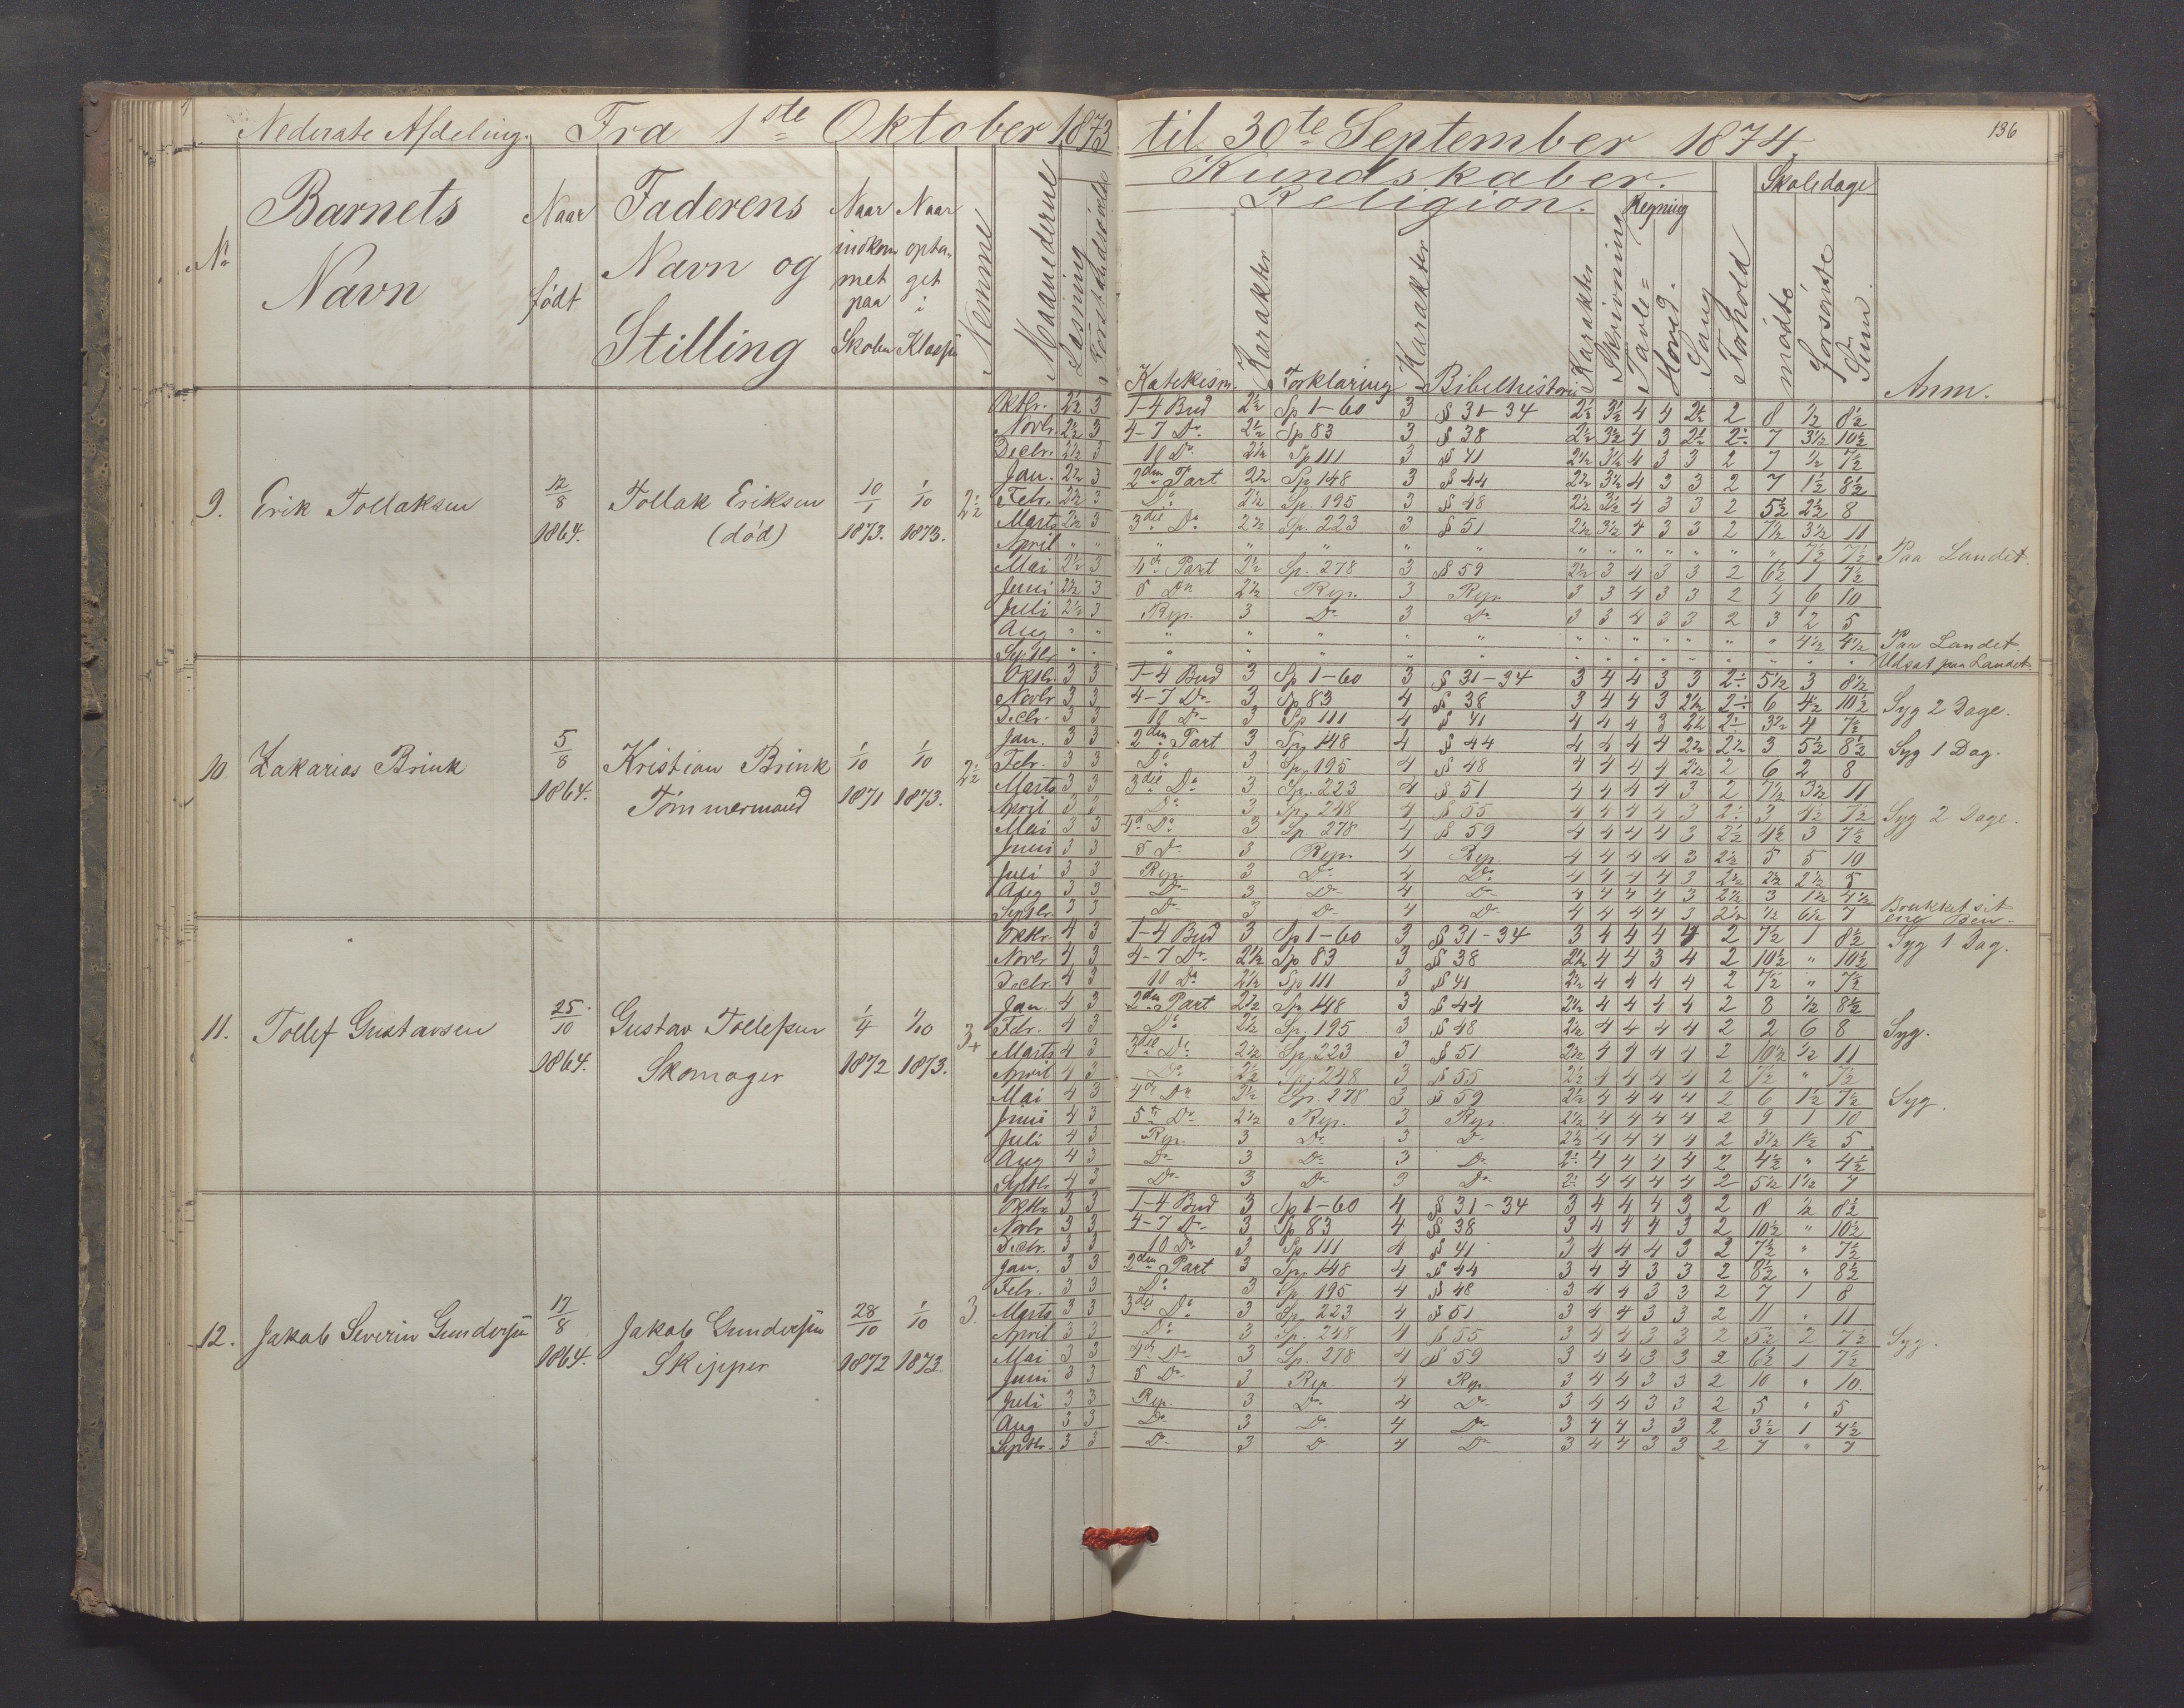 Nederste Afdeling. Fra 1ste Oktober 1873 til 30te September 1874. 136
Kundskaber.
Religion. Regning Skoledage
No Barnets Navn Naar født Faderens Navn og Stilling Naar indkommet paa Skolen Naar optaget i Klassen Nemme Maanederne Læsning Forstandsøvelse Katekism. Karakter Forklaring Karakter Bibelhistorie Karakter Skrivning Tavle= Hoved. Sang Forhold mødte forsømte Sum Anm.
9. Erik Tollaksen 12/8 1864. Tollak Eriksen (død) 10/1 1873. 1/10 1873. 2½
Oktbr. 2½ 3 1-4 Bud 2½ Sp 1-60 3 § 31-34 2½ 3½ 4 4 2½ 2 8 ½ 8½
Novbr. 2½ 3 4-7 Do 2½ Sp 83 3 § 38 2½ 3½ 4 3 2½ 2÷ 7 3½ 10½
Decbr. 2½ 3 10 Do 2½ Sp 111 3 § 41 2½ 3½ 4 3 3 2 7 ½ 7½
Jan. 2½ 3 2den Part 2½ Sp 148 3 § 44 2½ 3½ 4 3 3 2 7 1½ 8½
Febr. 2½ 3 Do 2½ Sp. 195 3 § 48 2½ 3½ 4 3 3 2 5½ 2½ 8
Marts 2½ 3 3die Do 2½ Sp. 223 3 § 51 2½ 3½ 4 3 3 2 7½ 3½ 11
April " " " " " " " " " " " " " " " 7½ 7½ Paa Landet.
Mai 2½ 3 4de Part 2½ Sp. 278 3 § 59 2½ 3 4 3 3 2 6½ 1 7½
Juni 2½ 3 5 Do 2½ Rep. 3 Rep. 3 3 4 3 3 2 4 6 10
Juli 2½ 3 Rep. 3 Do 3 Do 3 3 4 3 3 2 3 2 5
Aug " " " " " " " " " " " " " " " 4½ 4½ Paa Landet.
Septbr " " " " " " " " " " " " " " " " " Udsat paa Landet.
10. Zakarias Brink 5/8 1864. Kristian Brink Tømmermand 1/10 1871 1/10 1873. 2½
Oktbr. 3 3 1-4 Bud 3 Sp 1-60 3 § 31-34 3 4 4 3 3 2÷ 5½ 3 8½
Novbr 3 3 4-7 Do 3 Sp 83 4 § 38 3 4 4 3 2½ 2÷ 6 4½ 10½ Syg 2 Dage.
Decbr. 3 3 10 Do 3 Sp 111 4 § 41 4 4 4 3 2½ 2÷ 3½ 4 7½
Jan. 3 3 2den Part 3 Sp. 148 4 § 44 4 4 4 4 2½ 2½ 3 5½ 8½ Syg 1 Dag.
Febr. 3 3 Do 3 Sp. 195 4 § 48 4 4 4 4 2½ 2 6 2 8
Marts 3 3 3die Do 3 Sp. 223 4 § 51 4 4 4 4 3 2 7½ 3½ 11
April 3 3 Do 3 Sp. 248 4 § 55 4 4 4 4 3 2÷ 3 4½ 7½ Syg 2 Dage.
Mai 3 3 4de Do 3 Sp 278 4 § 59 4 4 4 4 3 2½ 4½ 3 7½
Juni 3 3 5 Do 3 Rep. 4 Rep. 4 4 4 4 3 2½ 5 5 10
Juli 3 3 Rep. 3 Do 4 Do 4 4 4 4 3 2½ 2½ 2½ 5
Aug 3 3 Do 3 Do 4 Do 4 4 4 4 3 2½ 3 1½ 4½
Septbr. 3 3 Do 3 Do 4 Do 4 4 4 4 3 2½ ½ 6½ 7 Brukket sit ene Ben.
11. Tollef Gustavsen 25/10 1864. Gustav Tollefsen Skomager 1/4 1872 1/10 1873. 3+
Oktbr. 4 3 1-4 Bud 3 Sp 1-60 3 § 31-34 3 4 4 4 4 2 7½ 1 8½ Syg 1 Dag.
Novbr 4 3 4-7 Do 2½ Sp 83 3 § 38 2½ 4 4 3 4 2 10½ " 10½
Decbr. 4 3 10 Do 2½ Sp 111 3 § 41 2½ 4 4 4 4 2 7½ " 7½
Jan. 4 3 2den Part 2½ Sp. 148 3 § 44 2½ 4 4 4 4 2 8 ½ 8½
Febr. 4 3 Do 2½ Sp. 195 3 § 48 2½ 4 4 4 4 2 2 6 8 Syg.
Marts 4 3 3die Do 2½ Sp 223 3 § 51 2½ 4 4 4 4 2 10½ ½ 11
April 4 3 Do 2½ Sp. 248 3 § 55 2½ 4 4 4 4 2 7½ " 7½
Mai 4 3 4de Do 2½ Sp. 278 3 § 59 2½ 4 4 4 4 2 6 1½ 7½ Syg.
Juni 4 3 5te Do 2½ Rep. 3 Rep. 2½ 4 4 4 4 2 9 1 10
Juli 4 3 Rep. 3 Do 3 Do 2½ 4 4 4 4 2 3½ 1½ 5
Aug 4 3 Do 3 Do 3 Do 2÷ 4 4 4 4 2 4½ " 4½
Septbr. 4 3 Do 3 Do 3 Do 2÷ 4 4 4 4 2 5½ 1½ 7
12. Jakob Severin Gundersen 17/8 1864. Jakob Gundersen Skipper 28/10 1872 1/10 1873 3.
Oktbr 3 3 1-4 Bud 3 Sp 1-60 4 § 31-34 3 4 4 4 3 2 8 ½ 8½
Novbr 3 3 4-7 Do 3 Sp 83 4 § 38 3 4 4 4 3 2 10½ " 10½
Decbr. 3 3 10 Do 3 Sp 111 4 § 41 3 4 4 4 3 2 7½ " 7½
Jan. 3 3 2den Part 3 Sp. 148 4 § 44 3 4 4 3 3 2 8½ " 8½
Febr. 3 3 Do 3 Sp. 195 4 § 48 3 4 4 3 3 2 7 1 8
Marts 3 3 3die Do 3 Sp. 223 4 § 51 3 4 4 3 3 2 11 " 11
April 3 3 Do 3 Sp. 248 4 § 55 3 4 4 3 3 2 5½ 2 7½ Syg.
Mai 3 3 4de Do 3 Sp. 278 4 § 59 3 4 4 3 3 2 6½ 1 7½
Juni 3 3 5 Do 3 Rep. 4 Rep. 3 4 4 3 3 2 10 " 10.
Juli 3 3 Rep. 3 Do 4 Do 3 4 4 3 3 2 5 " 5
Aug 3 3 Do 3 Do 4 Do 3 4 4 3 3 2 3½ 1 4½
Septbr. 3 3 Do 3 Do 4 Do 3 4 4 3 3 2 7 " 7